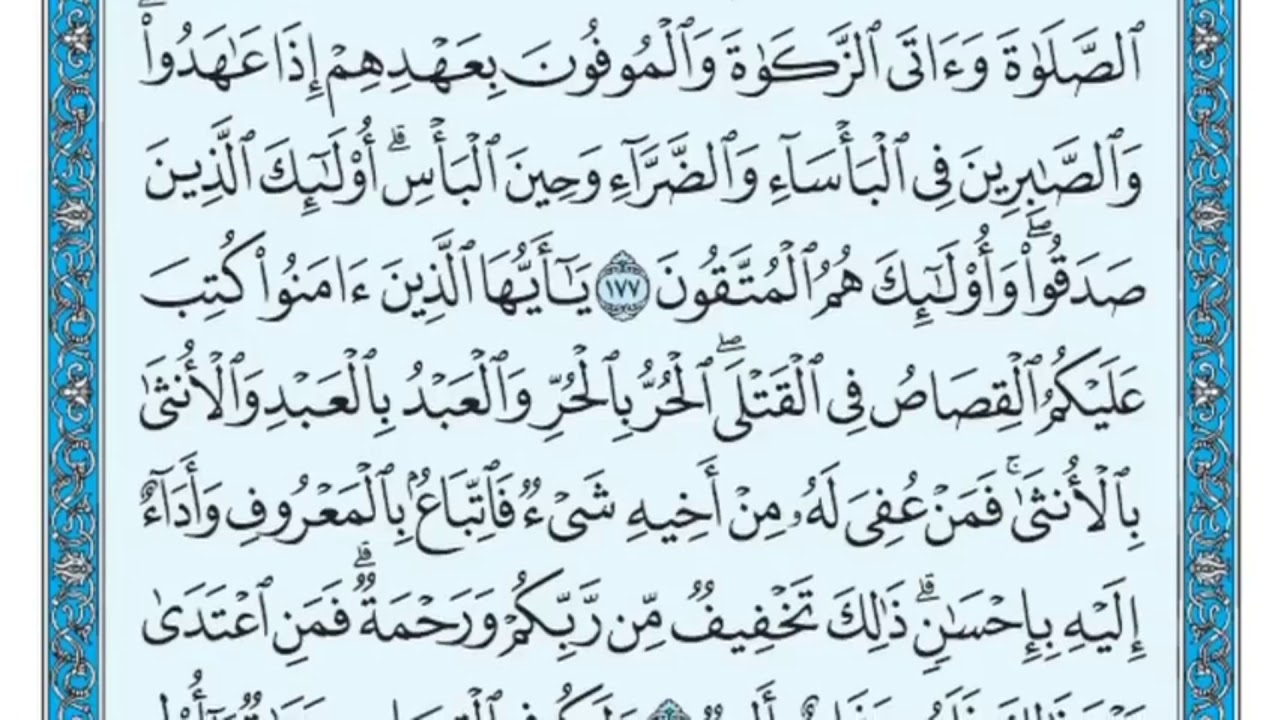 ٱلصَّلَوٰةَ وَءَاتَى ٱلزَّكَوٰةَ وَٱلْمُوفُونَ بِعَهْدِهِمْ إِذَا عَـٰهَدُوا۟ۖ
وَٱلصَّـٰبِرِينَ فِى ٱلْبَأْسَآءِ وَٱلضَّرَّآءِ وَحِينَ ٱلْبَأْسِۗ أُو۟لَـٰٓئِكَ ٱلَّذِينَ
صَدَقُوا۟ۖ وَأُو۟لَـٰٓئِكَ هُمُ ٱلْمُتَّقُونَ ١٧٧ يَـٰٓأَيُّهَا ٱلَّذِينَ ءَامَنُوا۟ كُتِبَ
عَلَيْكُمُ ٱلْقِصَاصُ فِى ٱلْقَتْلَىۖ ٱلْحُرُّ بِٱلْحُرِّ وَٱلْعَبْدُ بِٱلْعَبْدِ وَٱلْأُنثَىٰ
بِٱلْأُنثَىٰۚ فَمَنْ عُفِىَ لَهُۥ مِنْ أَخِيهِ شَىْءٌ فَٱتِّبَاعٌۢ بِٱلْمَعْرُوفِ وَأَدَآءٌ
إِلَيْهِ بِإِحْسَـٰنٍۗ ذَٰلِكَ تَخْفِيفٌ مِّن رَّبِّكُمْ وَرَحْمَةٌۗ فَمَنِ ٱعْتَدَىٰ